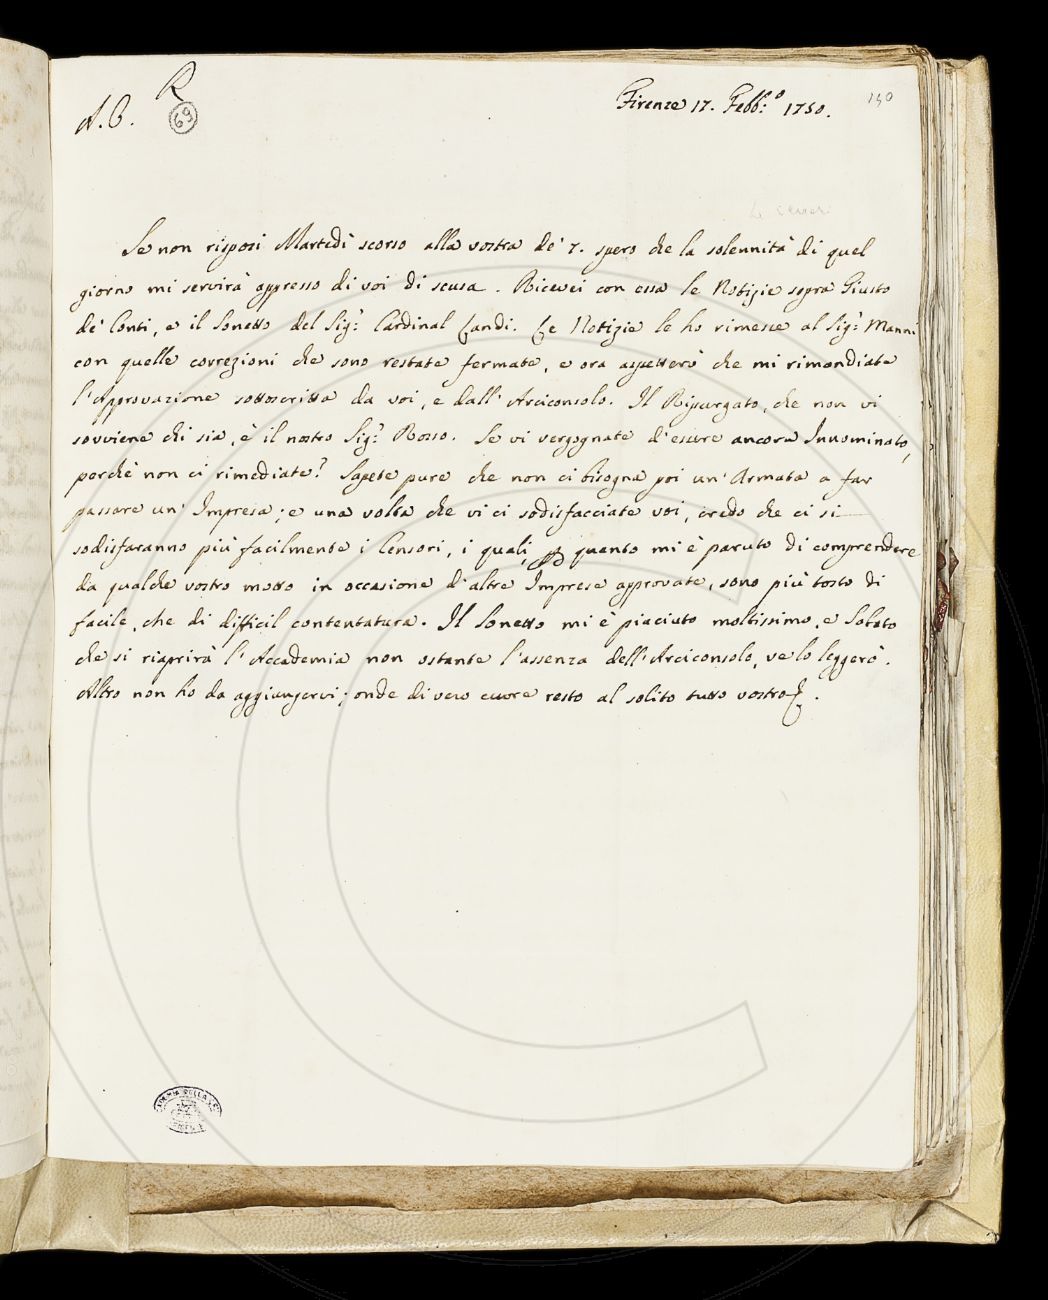 R
A. C. 69 Firenze 17. Febb:o 1750. 190
Se non risposi Martedì scorso alla vostra de' 7. spero che la solennità di quel
giorno mi servirà appresso di voi di scusa. Ricevei con essa le Notizie sopra Giusto
de' Conti, e il Sonetto del Sig:r Cardinal Landi. Le Notizie le ho rimesse al Sig:r Manni
con quelle correzioni che sono restate fermate, e ora aspetterò che mi rimandiate
l'Approvazione sottoscritta da voi, e dall'Arciconsolo. Il Ripurgato, che non vi
sovviene chi sia, è il nostro Sig:r Rosso. Se vi vergognate d'essere ancora Innominato,
perchè non ci rimediate? Sapete pure che non ci bisogna poi un'Armata a far
passare un'Impresa; e una volta che vi ci sodisfacciate voi, credo che ci si
sodisfaranno più facilmente i Censori, i quali per quanto mi è paruto di comprendere
da qualche vostro motto in occasione d'altre Imprese approvate, sono più tosto di
facile, che di difficil contentatura. Il Sonetto mi è piaciuto moltissimo, e Sabato
che si riaprirà l'Accademia non ostante l'assenza dell'Arciconsolo, ve lo leggerò.
Altro non ho da aggiungervi; onde di vero cuore resto al solito tutto vostro